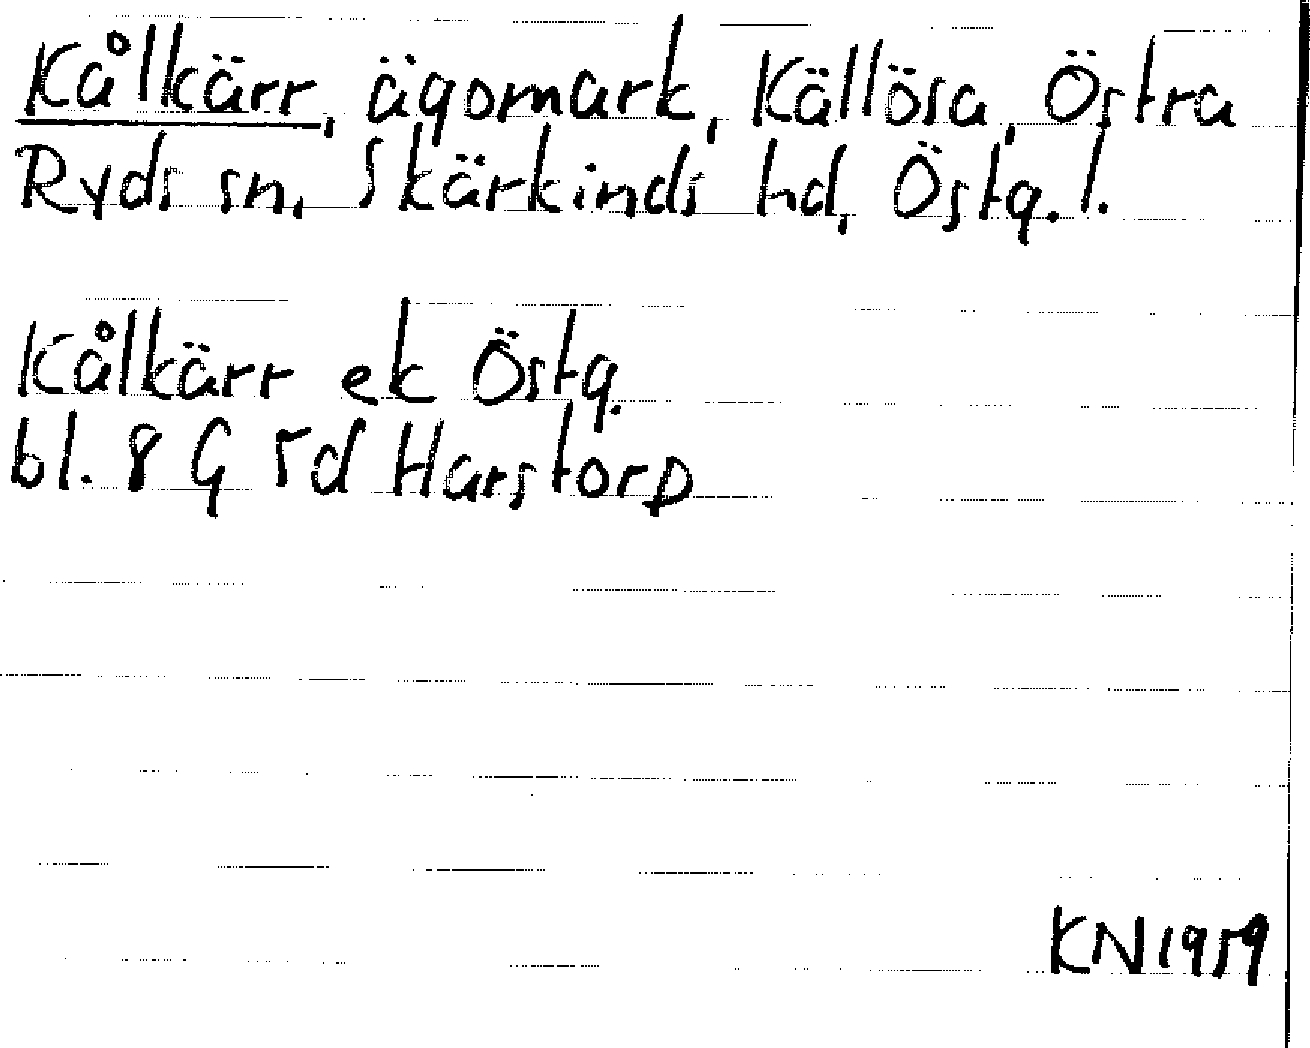 Kålkärr, ägomark, Källösa, Östra
Ryds sn, Skärkinds hd, Östg. l.
Kålkärr ek Östg.
bl. 8 G 5d Harstorp
KN 1959